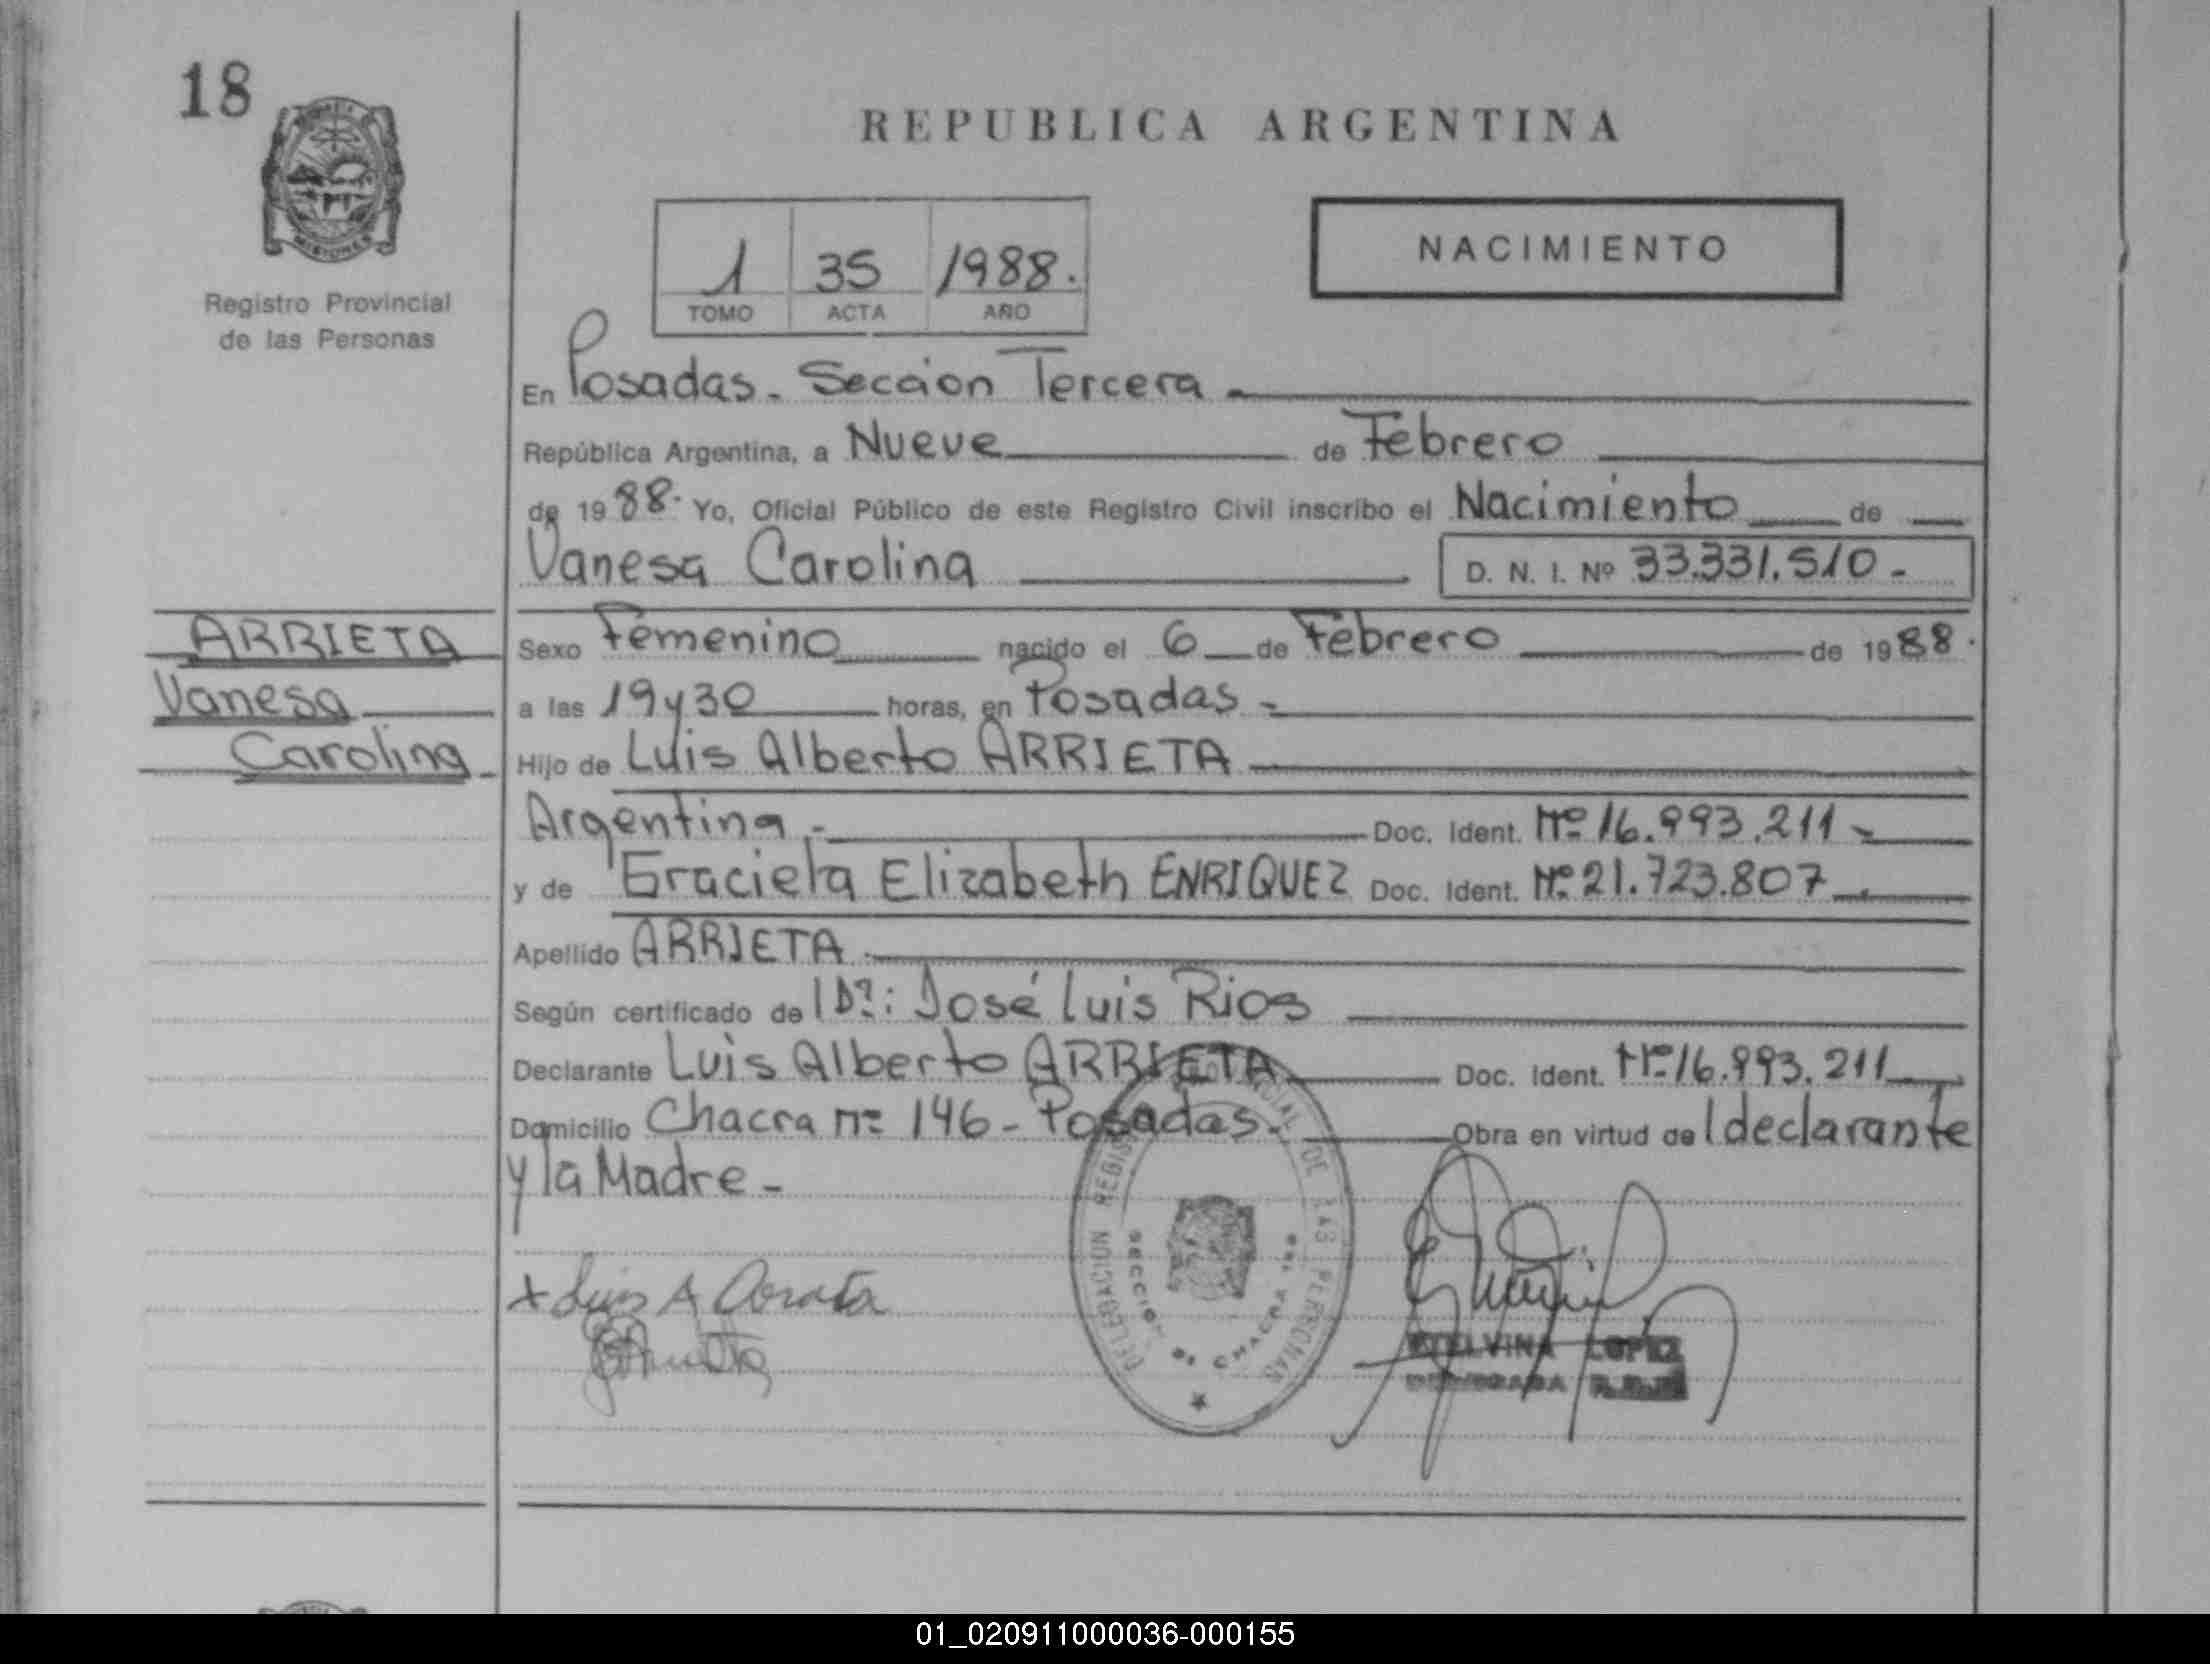 18
REPUBLICA ARGENTINA
MISIONES
Registro Provincial
de las Personas
1 35 1988.
TOMO ACTA AÑO
NACIMIENTO
En Posadas - Sección Tercera -
República Argentina, a Nueve de Febrero
de 1988. Yo, Oficial Público de este Registro Civil inscribo el Nacimiento de
Vanesa Carolina D. N. I. Nº 33.331.510 -
ARRIETA
Vanesa
Carolina -
Sexo Femenino nacido el 6 de Febrero de 1988.
a las 19 y 30 horas, en Posadas -
Hijo de Luis Alberto ARRIETA
Argentina - Doc. Ident. Nº 16.993.211 -
y de Graciela Elizabeth ENRIQUEZ Doc. Ident. Nº 21.723.807
Apellido ARRIETA
Según certificado de l Dr: José Luis Rios
Declarante Luis Alberto ARRIETA Doc. Ident. Nº 16.993.211
Domicilio Chacra nº 146 - Posadas. Obra en virtud de l declarante
y la Madre -
DELEGACION REGISTRO PROVINCIAL DE LAS PERSONAS
SECCION 3a CHACRA
+ Luis A Arrieta
LOPEZ
01_020911000036-000155